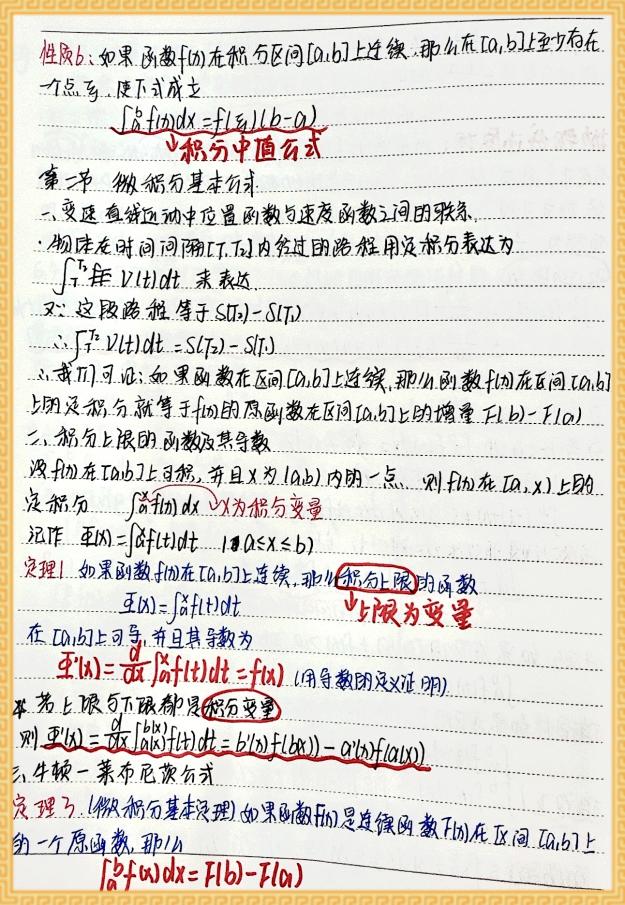 性质6：如果函数f(x)在积分区间[a,b]上连续，那么在[a,b]上至少存在
一个点ξ，使下式成立
∫ₐᵇf(x)dx=f(ξ)(b-a)
↓积分中值公式
第二节 微积分基本公式
一、变速直线运动中位置函数与速度函数之间的联系.
·物体在时间间隔[T₁T₂]内经过的路程用定积分表达为
V(t)dt 来表达.
又∵这段路程等于S(T₂)-S(T₁)
∴∫V(t)dt=S(T₂)-S(T₁)
∴我们可证：如果函数在区间[a,b]上连续，那么函数f(x)在区间[a,b]
上的定积分就等于f(x)的原函数在区间[a,b]上的增量F(b)-F(a)
二、积分上限的函数及其导数
设f(x)在[a,b]上可积，并且x为(a,b)内的一点，则f(x)在[a,x)上的
定积分 ∫ₐˣf(x)dx→x为积分变量
记作 Φ(x)=∫ₐˣf(t)dt (a≤x≤b)
定理1 如果函数f(x)在[a,b]上连续，那么积分上限的函数
Φ(x)=∫ₐˣf(t)dt ↓上限为变量
在[a,b]上可导，并且其导数为
Φ'(x)=d/dx∫ₐˣf(t)dt=f(x) (用导数的定义证明)
*若上限与下限都是积分变量
则Φ'(x)=d/dx∫a(x)b(x)f(t)dt=b'(x)f(b(x))-a'(x)f(a(x))
三、牛顿-莱布尼茨公式
定理3.(微积分基本定理)如果函数F(x)是连续函数f(x)在区间[a,b]上
的一个原函数，那么
∫ₐᵇf(x)dx=F(b)-F(a)